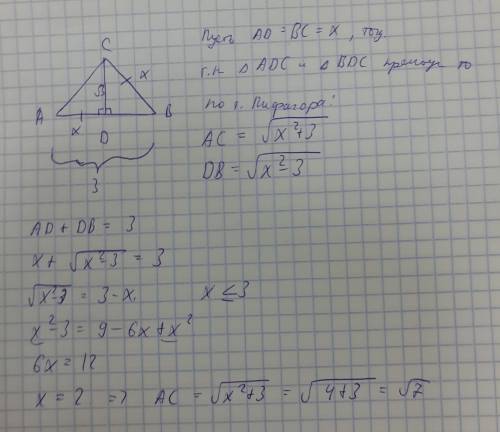 C
√3
x
A
x
D
B
3
Пусть AD = BC = x, тогда
т.к △ADC и △BDC прямоуг то
по т. Пифагора:
AC = √(x²+3)
DB = √(x²-3)
AD + DB = 3
x + √(x²-3) = 3
√(x²-3) = 3 - x, x ≤ 3
x² - 3 = 9 - 6x + x²
6x = 12
x = 2 => AC = √(x²+3) = √(4+3) = √7